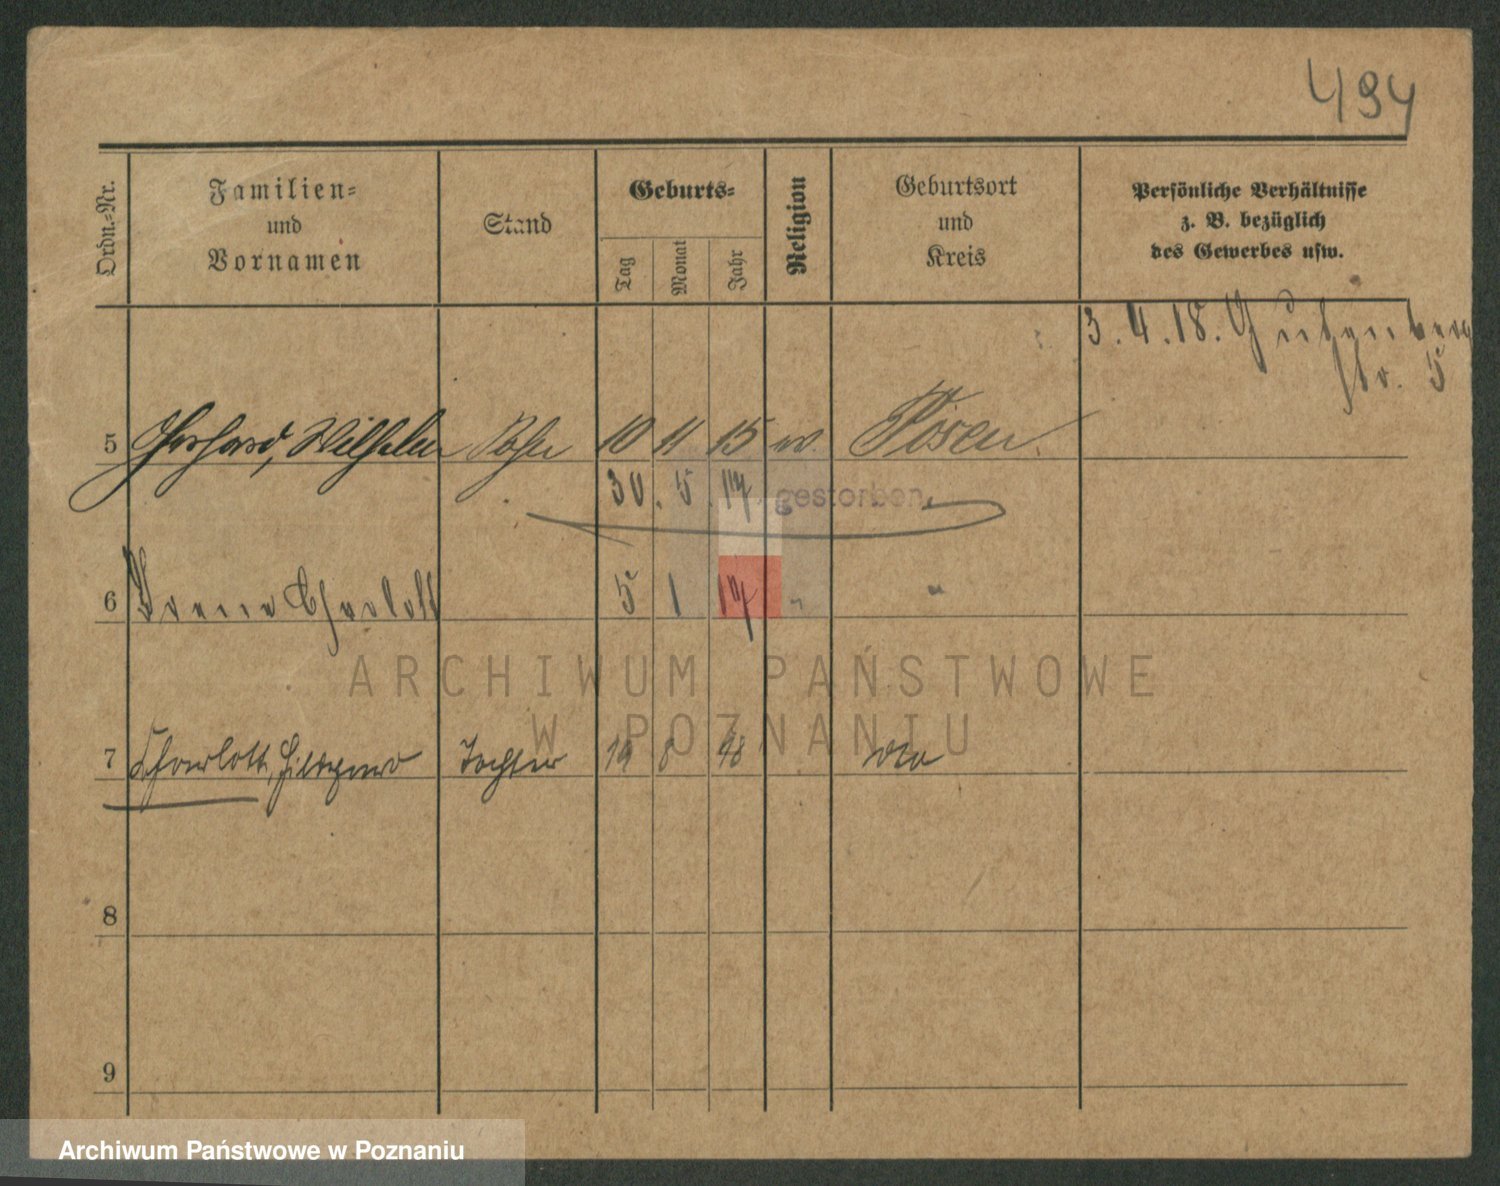 494
Ordn.-Nr.
Familien-
und
Vornamen
Stand
Geburts-
Tag
Monat
Jahr
Religion
Geburtsort
und
Kreis
Persönliche Verhältnisse
z. B. bezüglich
des Gewerbes usw.
3.4.18. Gutenberg
str. 5
5 Gerhard, Wilhelm Sohn 10 11 15 ev. Posen
30.5.17 gestorben.
6 5 1 17 " "
7 Charlott, Hildegard Tochter 19 8 18 dto
8
9
ARCHIWUM PAŃSTWOWE
W POZNANIU
Archiwum Państwowe w Poznaniu